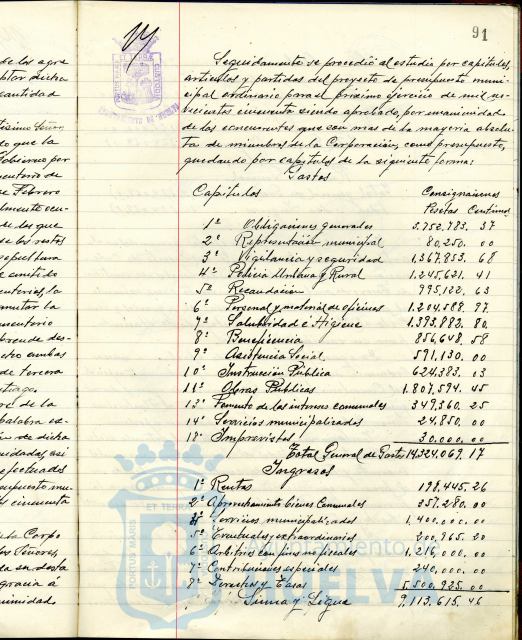 91
Seguidamente se procedió al estudio por capítulos,
artículos y partidas del proyecto de presupuesto muni-
cipal ordinario para el próximo ejercicio de mil no-
vecientos cincuenta siendo aprobado, por unanimidad
de los concurrentes que son mas de la mayoria absolu-
ta de miembros de la Corporación, como presupuesto,
quedando por capítulos de la siguiente forma:
Gastos
Capítulos Consignaciones
Pesetas Centimos
1º Obligaciones generales 3.752.783. 37
2º Representación municipal 80.250. 00
3º Vigilancia y seguridad 1.367.853. 68
4º Policia Urbana y Rural 1.245.621. 41
5º Recaudación 795.122. 63
6º Personal y material de oficinas 1.244.588. 97
7º Salubridad é Higiene 4.393.882. 80
8º Beneficencia 856.648. 58
9º Asistencia Social 591.130. 00
10º Instrucción Pública 624.383. 03
11º Obras Públicas 1.807.594. 45
13º Fomento de los intereses comunales 349.360. 25
14º Servicios municipalizados 24.850. 00
18º Imprevistos 30.000. 00
Total General de Gastos 14.324.069. 17
Ingresos
1º Rentas 198.445. 26
2º Aprovechamiento bienes Comunales 357.280. 00
3º Servicios municipalizados 1.400.000. 00
5º Eventuales y extraordinarios 200.965. 20
6º Arbitrios con fines no fiscales 1.216.000. 00
7º Contribuciones especiales 240.000. 00
8º Derechos y Tasas 5.500.925. 00
Suma y Sigue 9.113.615. 46
de los agre
dicha
cantidad
que la
por
de
Febrero
de las que
de los restos
sepultura
la
de tercera
de la
de dicha
así
cincuenta
Corpo
gracia á
PORTUS MARIS ET TERRAE